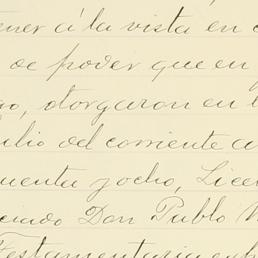 ner á la vista en c
de poder que en
o, otorgaron en l
ulio del corriente a
cuenta y ocho, Licen
ciado Don Pablo M
Testamentaria